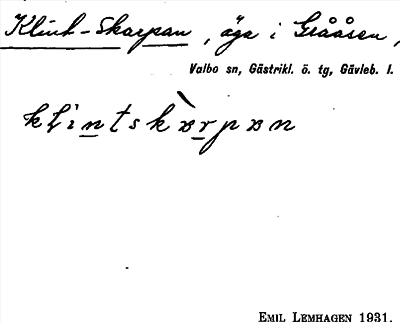 Klint-Skarpan, äga i Grååsen,
Valbo sn, Gästrikl. ö. tg, Gävleb. l.
klintskàrpan
EMIL LEMHAGEN 1931.